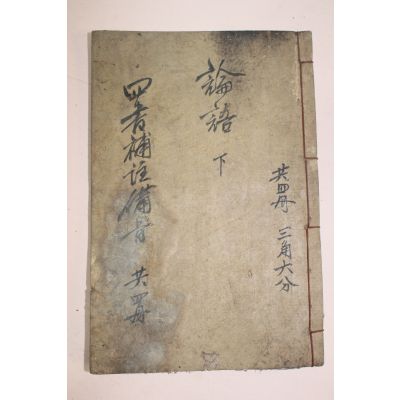 共四册 三角六分
論語 下
四書補註備旨 共四册